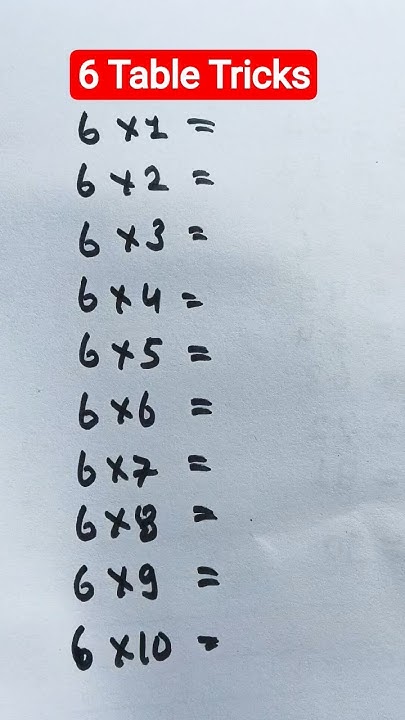 6 Table Tricks
6 × 1 =
6 × 2 =
6 × 3 =
6 × 4 =
6 × 5 =
6 × 6 =
6 × 7 =
6 × 8 =
6 × 9 =
6 × 10 =